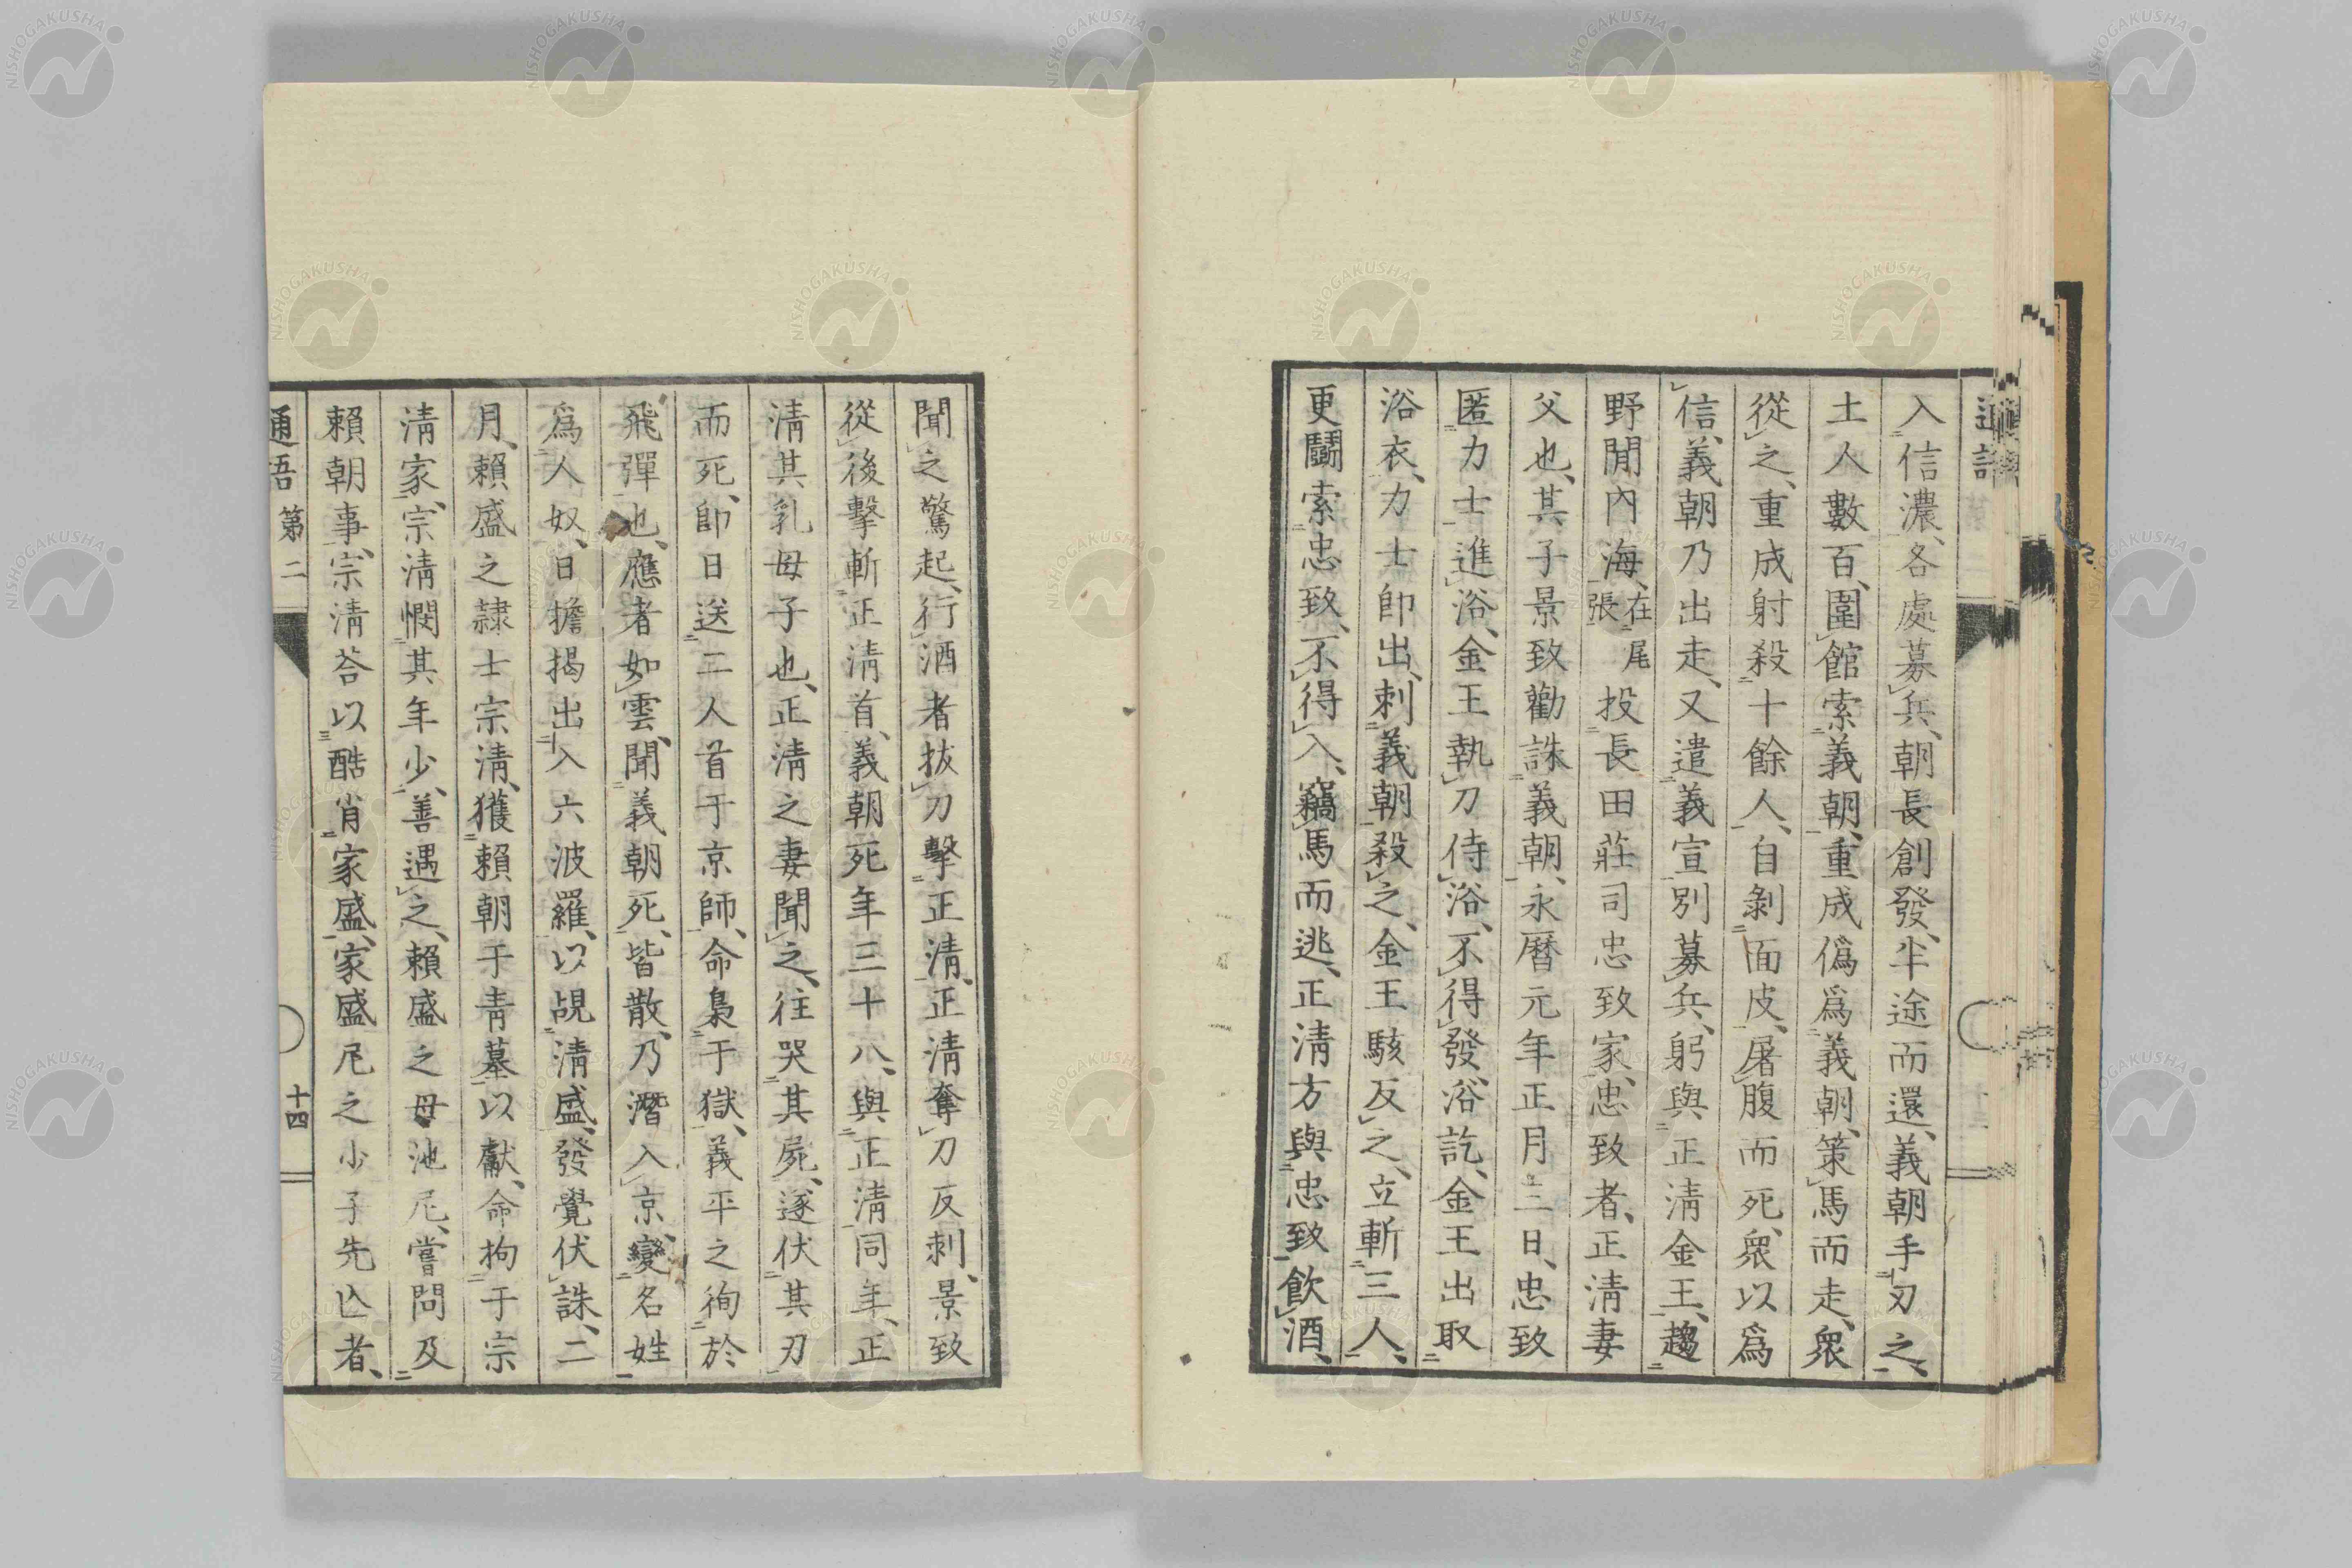 入信濃、各處募兵、朝長創發、半途而還、義朝手刃之、
土人數百、圍館索義朝、重成僞爲義朝、策馬而走、衆
從之、重成射殺十餘人、自剝面皮、屠腹而死、衆以爲
信、義朝乃出走、又遣義宣別募兵、躬與正淸金王、趨
野閒內海、在尾張投長田莊司忠致家、忠致者、正淸妻
父也、其子景致勸誅義朝、永曆元年正月三日、忠致
匿力士進浴、金王執刀侍浴、不得發、浴訖、金王出取
浴衣、力士卽出、刺義朝殺之、金王駭反之、立斬三人、
更鬭索忠致、不得入、竊馬而逃、正淸方與忠致飮酒、
聞之驚起、行酒者拔刀擊正淸、正淸奪刀反刺、景致
從後擊斬正淸首、義朝死年三十八、與正淸同年、正
淸其乳母子也、正淸之妻聞之、往哭其屍、遂伏其刃
而死、卽日送二人首于京師、命梟于獄、義平之徇於
飛彈也、應者如雲、聞義朝死、皆散、乃潛入京、變名姓
爲人奴、日擔揭出入六波羅、以覘淸盛、發覺伏誅、二
月、賴盛之隷士宗淸、獲賴朝于靑墓以獻、命拘于宗
淸家、宗淸憫其年少、善遇之、賴盛之母池尼、嘗問及
賴朝事、宗淸荅以酷肖家盛、家盛尼之少子先亾者、
通語 第二 十四
NISHOGAKUSHA